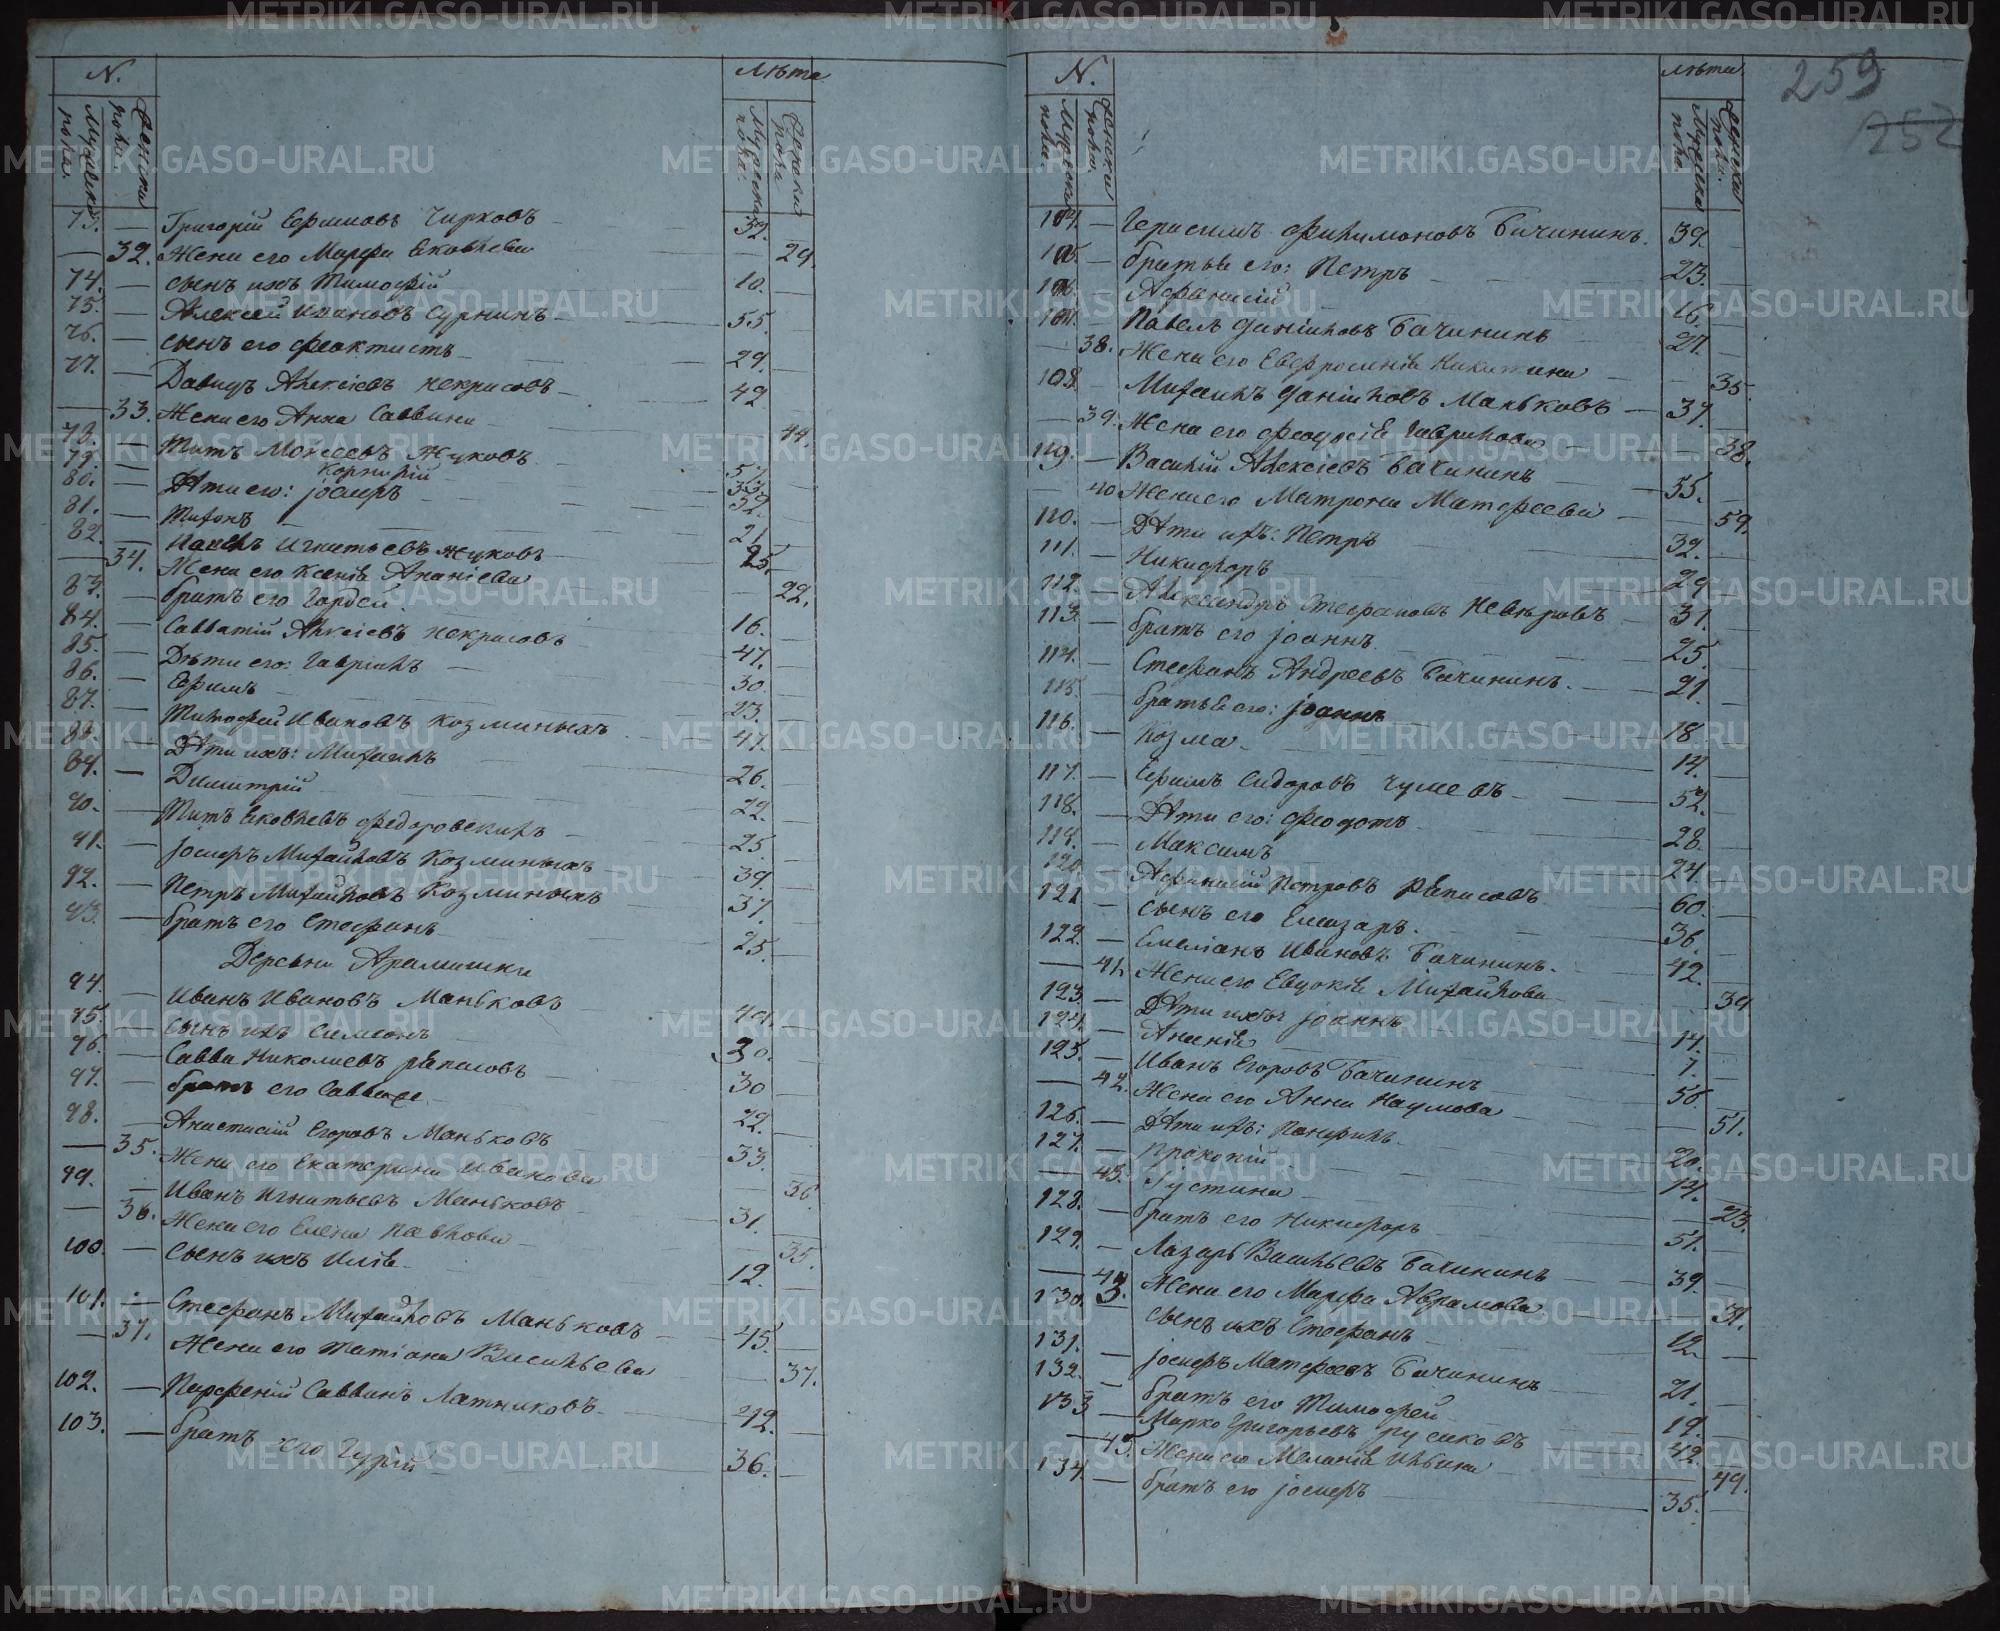 N.
Лѣта
Мужеска пола.
Женска пола.
Мужеска пола.
Женска пола
73. — Григорій Ефимовъ Чирковъ — 32. —
— 32. Жена его Марфа Яковлева — — 29.
74. — сынъ ихъ Тимофѣй — 10. —
75. — Алексѣй Ивановъ Сурнинъ — 55. —
76. — сынъ его Феоктистъ — 29. —
77. — Давидъ Алексіевъ Некрасовъ — 42 —
— 33. Жена его Анна Саввина — — 44.
78. — Титъ Моисеевъ Жуковъ 57.
79. — Корнилій 33.
80. — Дѣти его: Іосифъ — 32.
81. — Тихонъ — 21.
82. — Павелъ Игнатьевъ Жуковъ 25.
— 34. Жена его Ксенія Ананіева — 22.
83. — братъ его Гордей. — 16. —
84. — Савватій Алексіевъ Некрасовъ — 47. —
85. — Дѣти его: Гавріилъ — 30. —
86. — Ефимъ — 23. —
87. — Тимофей Ивановъ Козминыхъ — 47. —
88. — Дѣти ихъ: Михаилъ — 26. —
89. — Димитрій — 22. —
90. — Титъ Яковлевъ Федоровскихъ — 25 —
91. — Іосифъ Михайловъ Козминыхъ 39. —
92. — Петръ Михайловъ Козминыхъ 37. —
93. — братъ его Стефанъ — 25. —
Деревни Арамашки
94. — Иванъ Ивановъ Маньковъ — 49. —
95. — Сынъ ихъ Симеонъ — 20. —
96. — Савва Николаевъ Рѣпасовъ — 30 —
97. — братъ его Савва — 22. —
98. — Анастасій Егоровъ Маньковъ 33. —
— 35. Жена его Екатерина Иванова — 36
99. — Иванъ Игнатьевъ Маньковъ — 31. —
— 36. Жена его Елена Павлова — — 35.
100. — Сынъ ихъ Илія — 12. —
101. — Стефанъ Михайловъ Маньковъ — 45. —
— 37. Жена его Татіана Васильева — 37.
102. — Парфеній Саввинъ Латниковъ — 42. —
103. — братъ его Гурій — 36. —
N.
Лѣта
259
252
Мужеска пола.
Женска пола.
Мужеска пола.
Женска пола.
104. — Герасимъ Филимоновъ Бачининъ. 39. —
105. — братья его: Петръ — 23. —
106. — Афанасій — 16. —
107. — Павелъ Даніиловъ Бачининъ 27. —
— 38. Жена его Евфросинія Никитина — 35.
108. — Михаилъ Даніиловъ Маньковъ — 37. —
— 39. Жена его Феодосія Гаврилова — — 38.
109. — Василій Алексіевъ Бачининъ — 55. —
— 40 Жена его Матрона Матфеева — — 59.
110. — Дѣти ихъ: Петръ 32. —
111. — Никифоръ — 29 —
112. — Александръ Стефановъ Невѣровъ — 31. —
113. — братъ его Іоаннъ. — 25. —
114. — Стефанъ Андреевъ Бачининъ. — 21. —
115. — братья его: Іоаннъ — 18. —
116. — Козма — 14. —
117. — Ефимъ Сидоровъ Чушевъ — 52. —
118. — Дѣти его: Феодотъ. — 28. —
119. — Максимъ 24. —
120. — Афанасій Петровъ Рѣпасовъ 60. —
121 — сынъ его Елеазаръ. — 36. —
122. — Емеліанъ Ивановъ Бачининъ. 42. —
— 41. Жена его Евдокія Михайлова — 39
123. — Дѣти ихъ: Іоаннъ 14. —
124. — Ананія 7. —
125. — Иванъ Егоровъ Бачининъ 56. —
— 42. Жена его Анна Наумова — 51.
126. — Дѣти ихъ: Панфилъ. — 20. —
127. — Прокопій — 14. —
— 43. Іустина — 23.
128. — братъ его Никифоръ 51. —
129. — Лазарь Васильевъ Бачининъ — 39. —
— 43. Жена его Марфа Абрамова — 31.
130. — сынъ ихъ Стефанъ — 12. —
131. — Іосифъ Матфеевъ Бачининъ — 21. —
132. — братъ его Тимофей — 19. —
133 — Марко Григорьевъ Русаковъ 42. —
— 45. Жена его Меланія Ильина — 49.
134. — братъ его Іосифъ — 35. —
METRIKI.GASO-URAL.RU